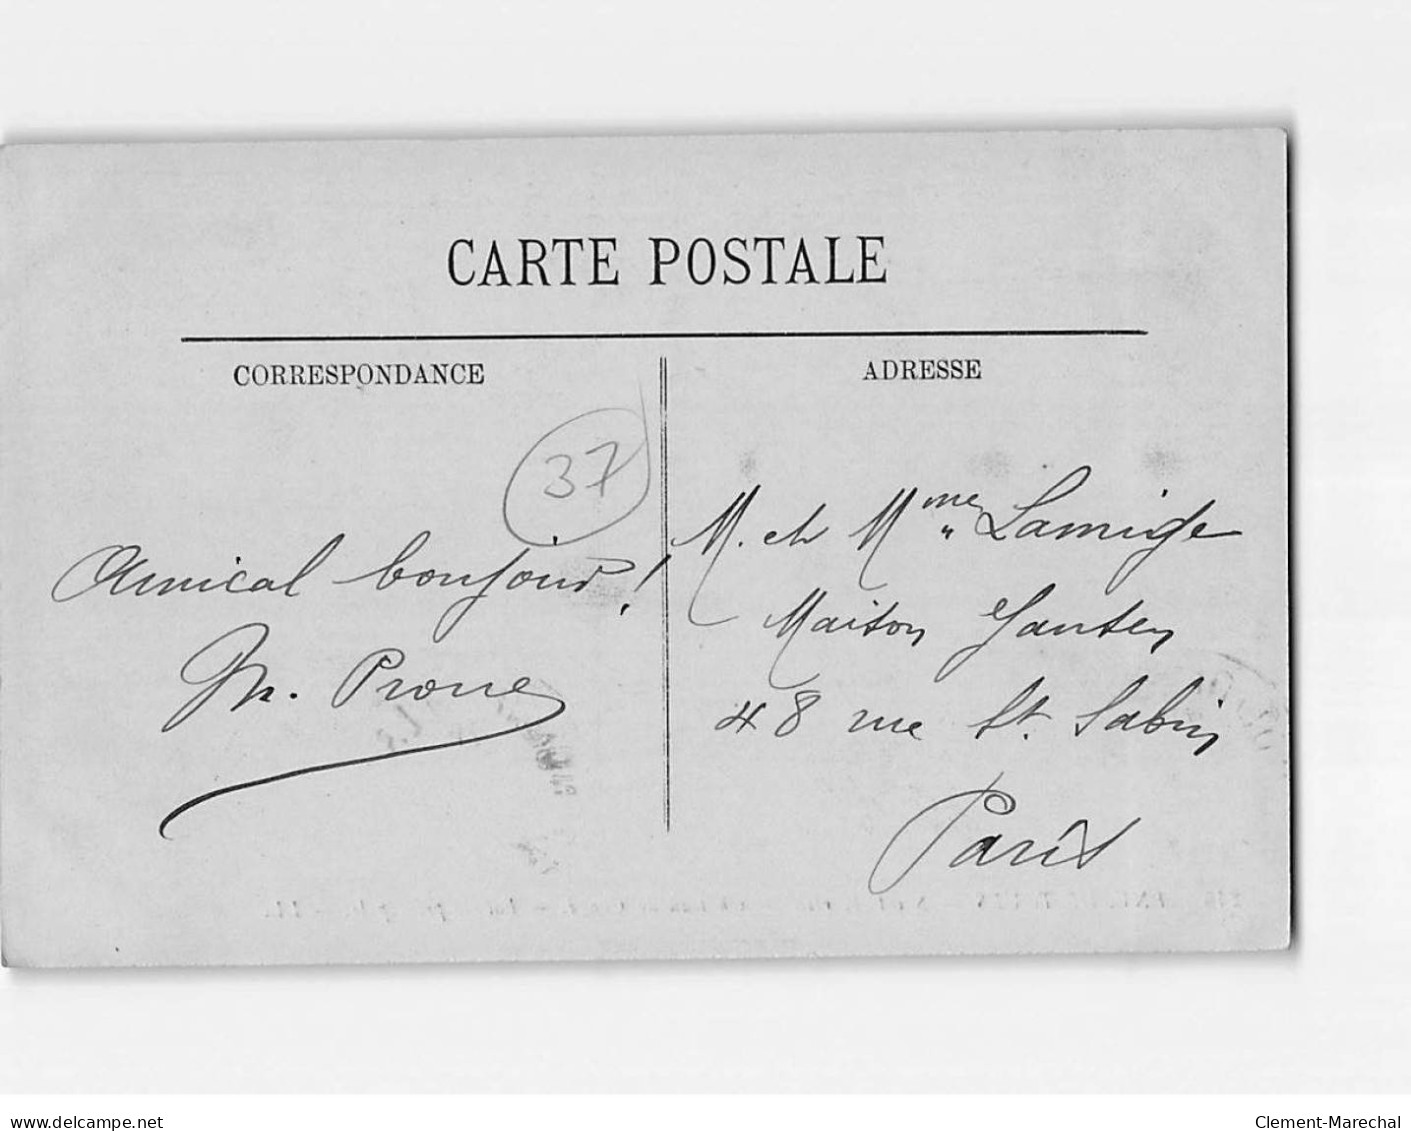 CARTE POSTALE
CORRESPONDANCE
ADRESSE
37
Amical bonjour !
M. Prone
M. et Mme Lamige
Maison Jansen
48 rue St. Sabin
Paris
delcampe.net
Clement-Marechal